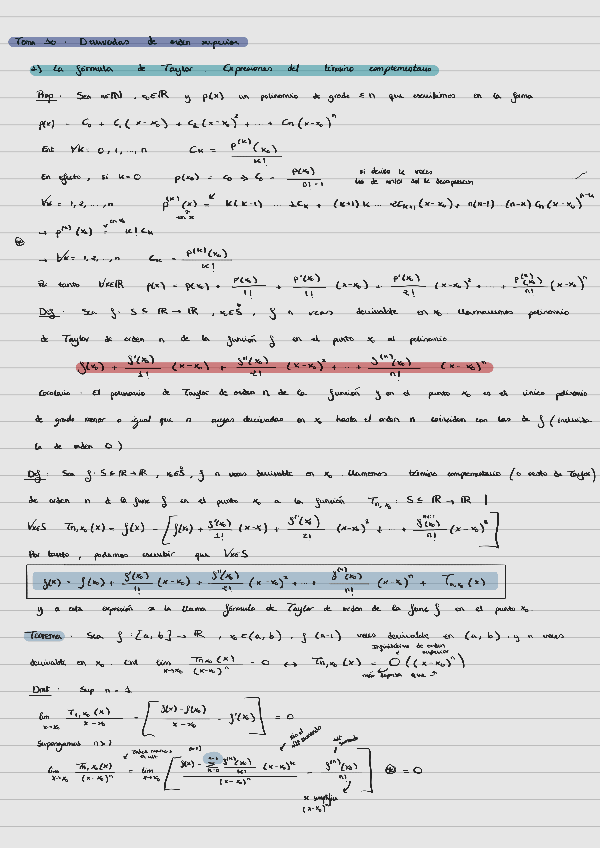 Tema 10. Derivadas de orden superior
2) La fórmula de Taylor. Expresiones del término complementario
Prop. Sea n∈ℕ, x₀∈ℝ y p(x) un polinomio de grado ≤ n que escribimos en la forma
p(x) = C₀ + C₁(x-x₀) + C₂(x-x₀)² + ... + Cn(x-x₀)ⁿ
Ent ∀k = 0, 1, ..., n Cₖ = p⁽ᵏ⁾(x₀) / k!
En efecto, si k=0 p(x₀) = C₀ → C₀ = p(x₀) / 0! = 1 si derivo k veces
los de menor del k desaparecen
∀k = 1, 2, ..., n p⁽ᵏ⁾(x) = k(k-1) ... 1Cₖ + (k+1)k ... 2Cₖ₊₁(x-x₀) + n(n-1) (n-k) Cn(x-x₀)ⁿ⁻ᵏ
→ p⁽ᵏ⁾(x₀) = k! Cₖ
→ ∀k = 1, 2, ..., n Cₖ = p⁽ᵏ⁾(x₀) / k!
Por tanto ∀x∈ℝ p(x) = p(x₀) + p'(x₀)/1! + p'(x₀)/1! (x-x₀) + p''(x₀)/2! (x-x₀)² + ... + p⁽ⁿ⁾(x₀)/n! (x-x₀)ⁿ
Def. Sea f: S ⊆ ℝ → ℝ, x₀∈S, f n veces derivable en x₀. Llamaremos polinomio
de Taylor de orden n de la función f en el punto x₀ al polinomio
f(x₀) + f'(x₀)/1! (x-x₀) + f''(x₀)/2! (x-x₀)² + ... + f⁽ⁿ⁾(x₀)/n! (x-x₀)ⁿ
Corolario. El polinomio de Taylor de orden n de la función f en el punto x₀ es el único polinomio
de grado menor o igual que n cuyas derivadas en x₀ hasta el orden n coinciden con las de f (incluida
la de orden 0)
Def. Sea f: S ⊆ ℝ → ℝ, x₀∈S, f n veces derivable en x₀. Llamamos término complementario (o resto de Taylor)
de orden n de la func f en el punto x₀ a la función Tn,x₀ : S ⊆ ℝ → ℝ |
∀x∈S Tn,x₀(x) = f(x) - [f(x₀) + f'(x₀)/1! (x-x₀) + f''(x₀)/2! (x-x₀)² + ... + f⁽ⁿ⁾(x₀)/n! (x-x₀)ⁿ]
Por tanto, podemos escribir que ∀x∈S
f(x) = f(x₀) + f'(x₀)/1! (x-x₀) + f''(x₀)/2! (x-x₀)² + ... + f⁽ⁿ⁾(x₀)/n! (x-x₀)ⁿ + Tn,x₀(x)
y a esta expresión se la llama fórmula de Taylor de orden de la func f en el punto x₀.
Teorema. Sea f: [a, b] → ℝ, x₀∈(a, b), f (n-1) veces derivable en (a, b) y n veces
derivable en x₀. Ent lim x→x₀ Tn,x₀(x) / (x-x₀)ⁿ = 0 ↔ Tn,x₀(x) = O((x-x₀)ⁿ)
infinitésimo de orden superior
más deprisa que
Dmt. Sup n = 1
lim x→x₀ T₁,x₀(x) / x-x₀ = [f(x)-f(x₀) / x-x₀ - f'(x₀)] = 0
Supongamos n>1
lim x→x₀ Tn,x₀(x) / (x-x₀)ⁿ = lim x→x₀ [f(x) - Σ k=0 f⁽ᵏ⁾(x₀)/k! (x-x₀)ᵏ / (x-x₀)ⁿ - f⁽ⁿ⁾(x₀)/n!] ⊛ = 0
se simplifica
(x-x₀)ⁿ